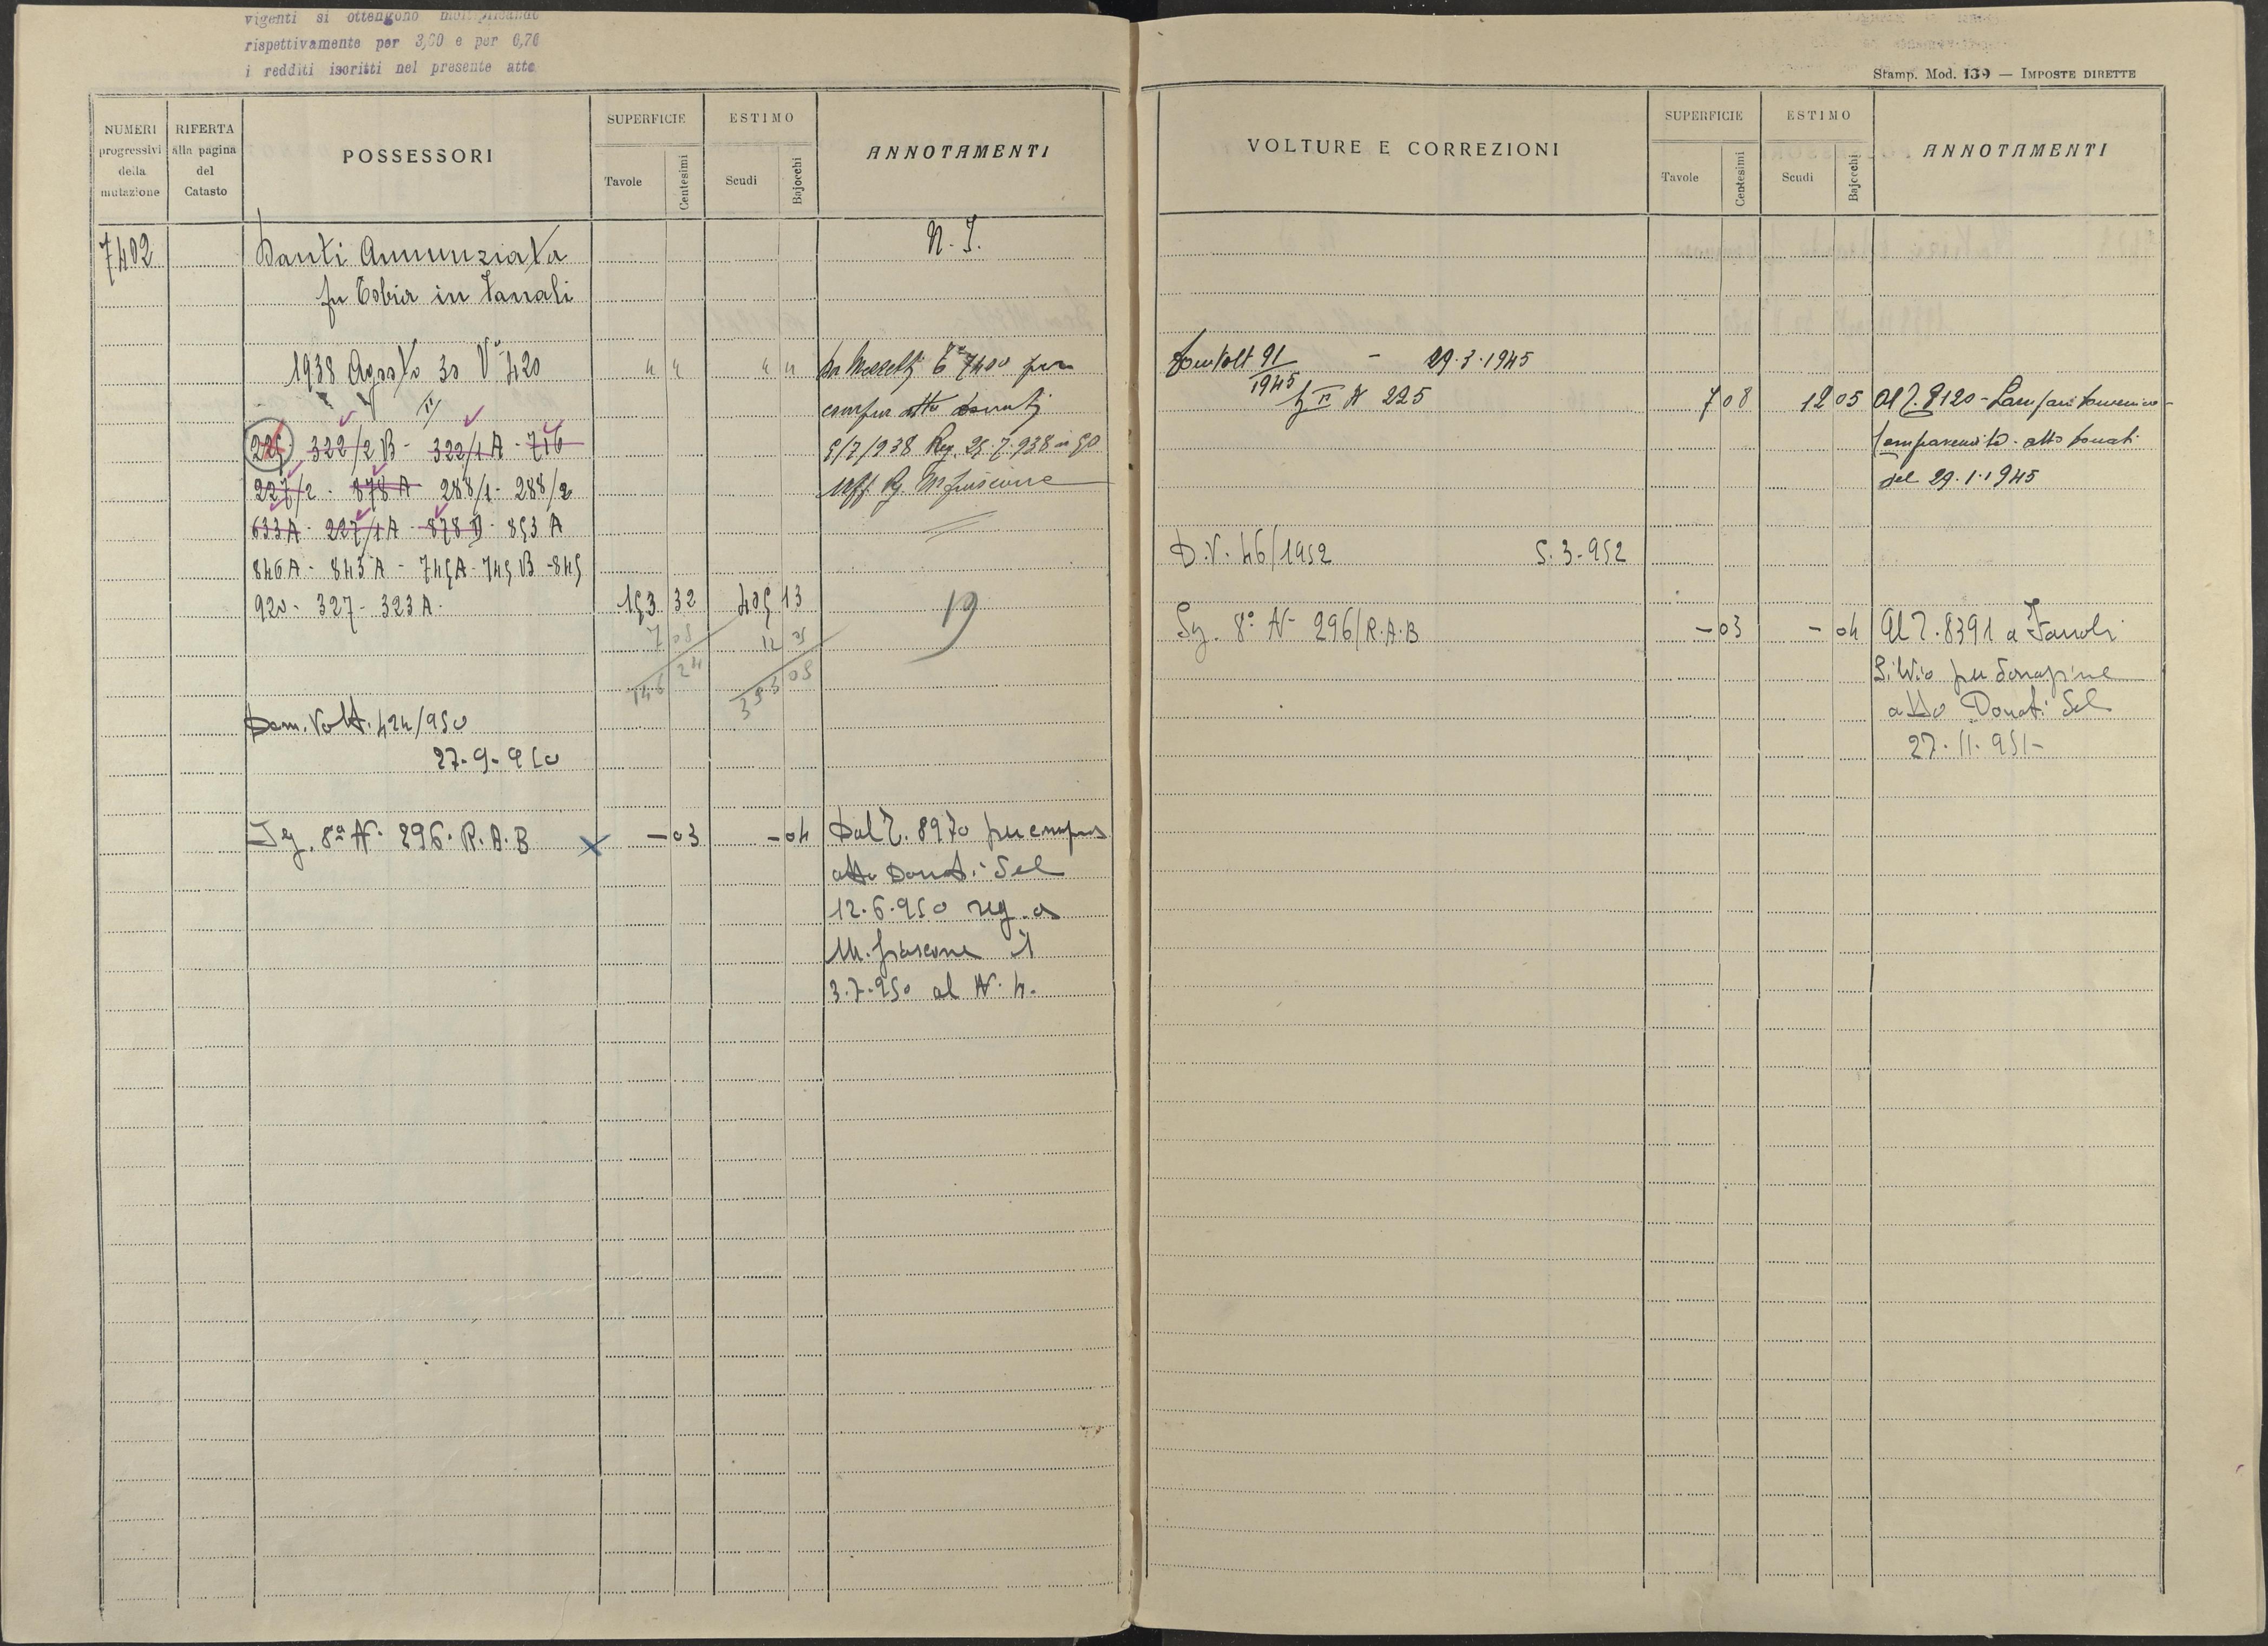 vigenti si ottengono moltiplicando
rispettivamente per 3,60 e per 0,70
i redditi iscritti nel presente atto
NUMERI progressivi della mutazione
RIFERTA alla pagina del Catasto
POSSESSORI
SUPERFICIE
Tavole
Centesimi
ESTIMO
Scudi
Bajocchi
ANNOTAMENTI
7402
Danti Annunziata
fu Tobia in
N.
1938 Agosto 30 V° 420
" " " "
7400 per
compra atto Donati
/7/938 Reg. 25.7.938
Uff. Rg. Mfiascone
322/2 B - 322/1 A - 716
227/2 - 878 A 288/1 - 288/2
633 A - 227/1 A - 878 D - 853 A
846 A - 843 A - 745 A - 745 B - 845
920 - 327 - 323 A.
153 32 405 13
19
7 08 12 05
146 24 393 08
Dom. Volt. 424/950
27-9-950
Sz. 8ª N. 296. R.A.B
X
-03 -04
Dal T. 8970 per compra
atto Donati del
12.6.950 reg. a
M.fiascone il
3.7.950 al N. 4.
Stamp. Mod. 139 — IMPOSTE DIRETTE
VOLTURE E CORREZIONI
SUPERFICIE
Tavole
Centesimi
ESTIMO
Scudi
Bajocchi
ANNOTAMENTI
Dom Volt 91/1945 - 29.3.1945
N 225
7 08 12 05
Al T. 8120 -
compravendita - atto Donati
del 29.1.1945
D.V. 46/1952 5.3-952
Sz. 8ª N 296/R.A.B
-03 -04
Al T. 8391 a
Silvio per
atto Donati del
27.11.951-